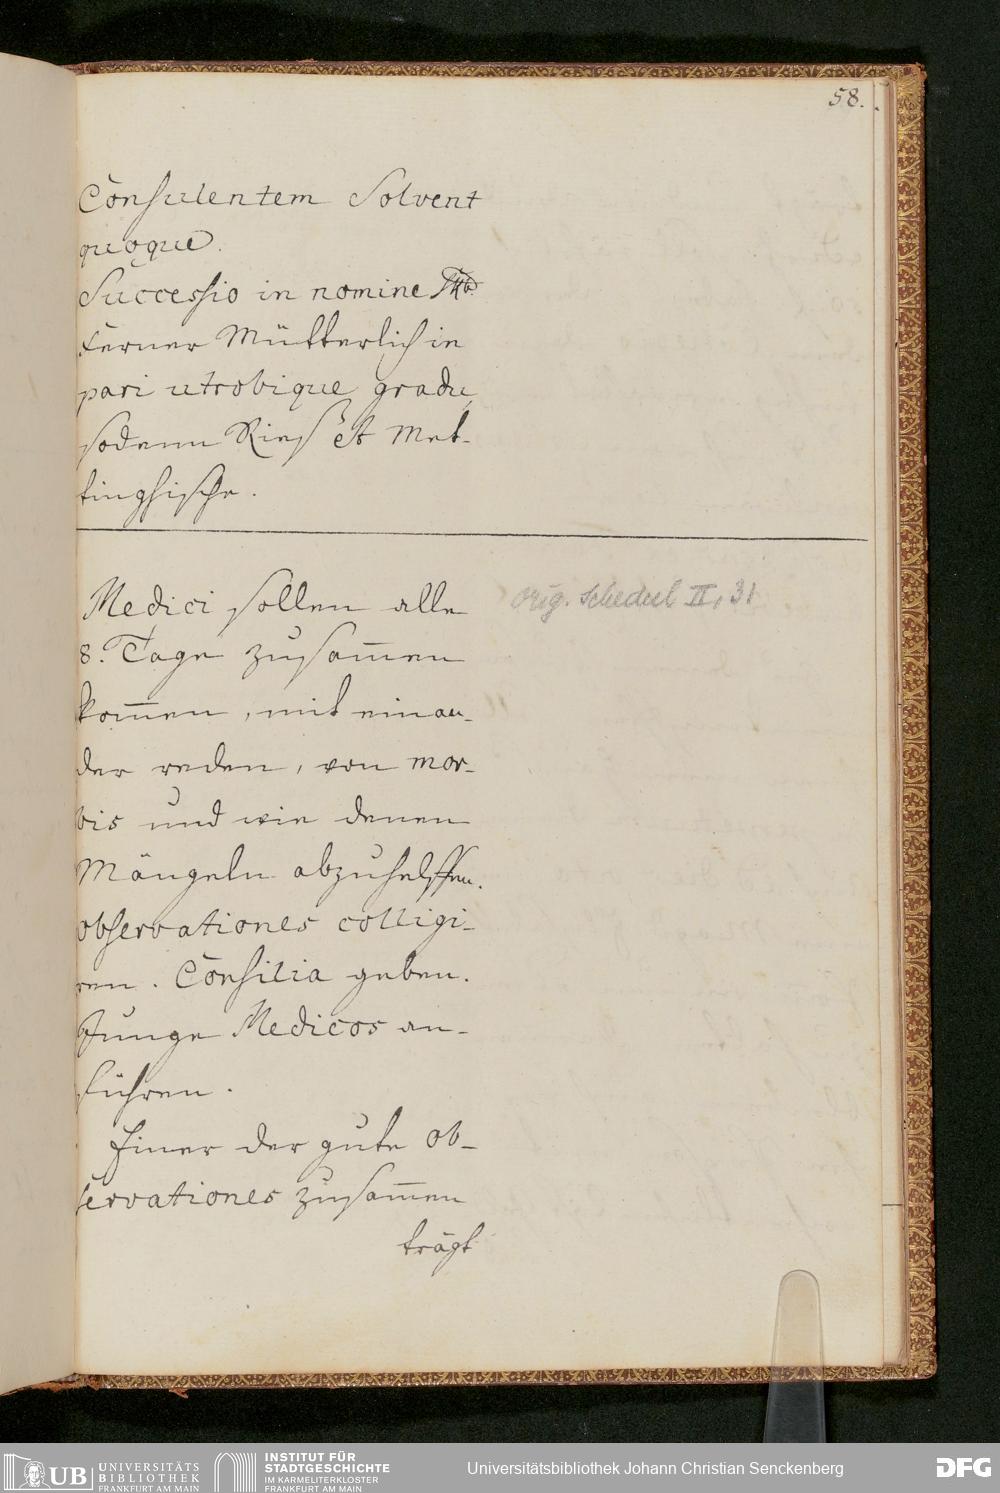 58.
Consulentem Solvent
quoque.
Successio in nomine
ferner Mütterlich in
pari utrobique gradu,
sodenn Ries et Met-
tinghische.
Medici sollen alle
8. Tage zusam̄en
kom̄en, mit einan-
der reden, von mor-
bis und wie denen
Mängeln abzuhelffen.
observationes colligi-
ren. Consilia geben.
Junge Medicos an-
führen.
Einer der gute ob-
servationes zusam̄en
trägt
orig. Schedul II, 31
UB UNIVERSITÄTS
BIBLIOTHEK
FRANKFURT AM MAIN
INSTITUT FÜR
STADTGESCHICHTE
IM KARMELITERKLOSTER
FRANKFURT AM MAIN
Universitätsbibliothek Johann Christian Senckenberg
DFG